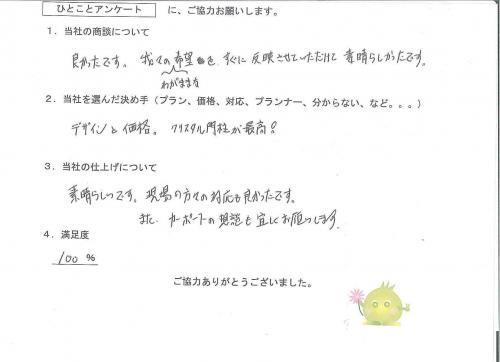 ひとことアンケート に、ご協力お願いします。
1．当社の商談について
良かったです。我々の希望を、すぐに反映させていただけて素晴らしかったです。
わがままな
2．当社を選んだ決め手（プラン、価格、対応、プランナー、分からない、など。。。）
デザインと価格。クリスタル門柱が最高！
3．当社の仕上げについて
素晴らしいです。現場の方々の対応も良かったです。
また、カーポートの相談も宜しくお願いします。
4．満足度
100 %
ご協力ありがとうございました。